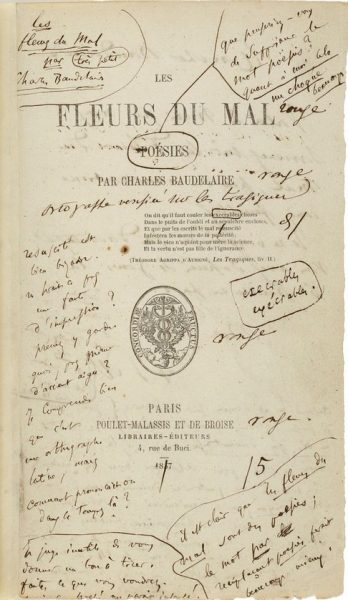 les
fleurs du Mal
par très petit
Charles Baudelaire
que pensez-vous
de supprimer le
mot poésies?
quant à moi cela
me choque
beaucoup
LES
FLEURS DU MAL
rouge
POÉSIES
PAR CHARLES BAUDELAIRE
rouge
ortographe vérifiée sur les tragiques
On dit qu'il faut couler les execrables choses
Dans le puits de l'oubli et au sepulchre encloses,
Et que par les escrits le mal resuscité
Infectera les mœurs de la postérité;
Mais le vice n'a point pour mère la science,
Et la vertu n'est pas fille de l'ignorance.
(THÉODORE AGRIPPA D'AUBIGNÉ, Les Tragiques, liv. II.)
8/
resuscité est
bien bizarre.
une faute
d'impression?
prenez y garde
quoi, pas même
d'accent aigu?
Je comprends bien
que c'est
une orthographe
latine, mais
comment prononçait-on
dans le temps là?
execrables
exécrables.
CONCORDIÆ FRUCTUS
rouge
PARIS
POULET-MALASSIS ET DE BROISE
rouge.
LIBRAIRES-ÉDITEURS
4, rue de Buci.
1857
15
il est clair que les fleurs du
mal sont des poésies;
le mot par
remplaçant poésies, ferait
beaucoup mieux.
Je juge inutile de vous
donner un bon à tirer.
faites ce que vous voudrez.